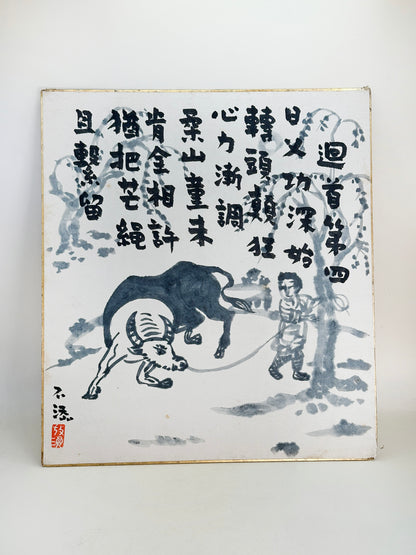 迴首第四
日久功深始
轉頭顛狂
心力漸調
柔山童未
肯全相許
猶把芒繩
且繫留